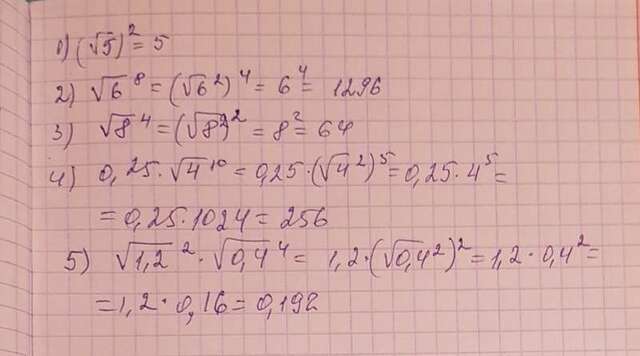 1) (√5)² = 5
2) √6⁸ = (√6²)⁴ = 6⁴ = 1296
3) √8⁴ = (√8²)² = 8² = 64
4) 0,25 · √4¹⁰ = 0,25 · (√4²)⁵ = 0,25 · 4⁵ =
= 0,25 · 1024 = 256
5) √1,2² · √0,4⁴ = 1,2 · (√0,4²)² = 1,2 · 0,4² =
= 1,2 · 0,16 = 0,192